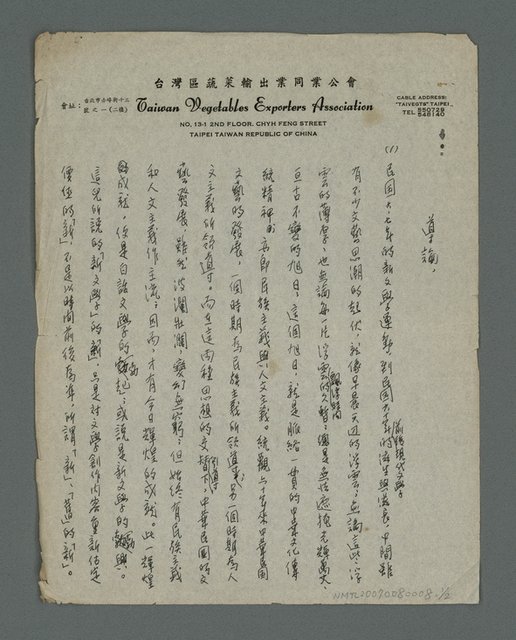 台灣區蔬菜輸出業同業公會
會址:台北市赤峰街十三號之一(二樓)
Taiwan Vegetables Exporters Association
NO. 13-1 2ND FLOOR. CHYH FENG STREET
TAIPEI TAIWAN REPUBLIC OF CHINA
CABLE ADDRESS:
"TAIVEGTS" TAIPEI
TEL 550729
548140
導論、
(1)民國六、七年的新文學運動,到民國六十年的前後現代文學的滋生與滋長,中間雖
有不少文藝思潮的起伏,就像早晨天邊的浮雲;無論這些浮
雲的薄厚,也無論每一片浮雲的飄浮時間久暫,總是無法遮掩光輝萬丈、
亘古不變的旭日。這個旭日,就是脈絡一貫的中華文化傳
統精神的,亦即民族主義與人文主義。統觀六十年來中華民國
文藝的發展,一個時期為民族主義所領導,另一個時期為人
文主義所領導。而在這兩種思想的交替下,中華民國的文
藝發展,雖然波瀾壯闊,變幻無窮,但始終有民族主義
和人文主義作主流。因而,才有今日輝煌的成就。此一輝煌
成就,你是白話文學的起,或說是新文學的興。
這兒所說的「新文學」的「新」,是對文學創作內容重新估定
價值的「新」,不是以時間前後為準,所謂「新」、「舊」的「新」。
NMTL20070080008-1/2